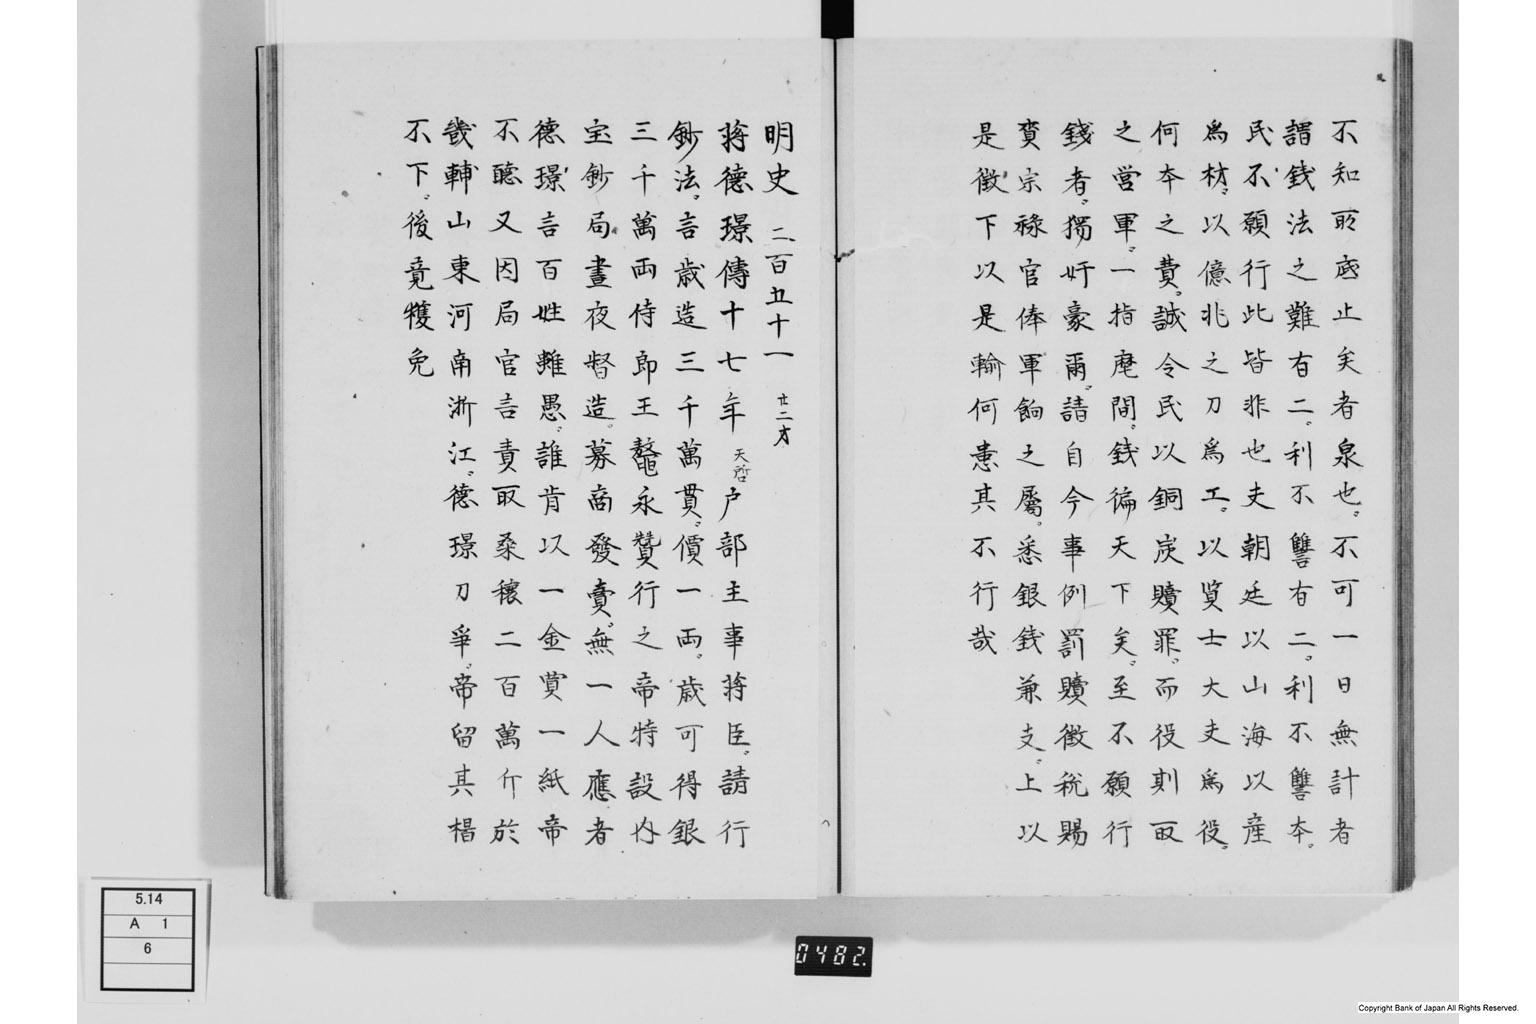 不知所底止矣者泉也。不可一日無計者
謂錢法之難有二。利不讐有二。利不讐本。
民不願行此皆非也夫朝廷以山海以産
爲材。以億兆之刀爲工。以贤士大夫爲役。
何本之費。誠令民以銅炭贖罪。而役則取
之営軍。一指麾間。錢徧天下矣。至不願行
錢者。獨奸豪爾。請自今事例罰贖徴税賜
賚宗祿官俸軍餉之屬。悉銀錢兼支。上以
是徴下以是輸何患其不行哉
明史 二百五十一 廿二才
蒋德璟傳十七年 天啓 户部主事蒋臣。請行
鈔法。言歳造三千萬貫。價一両。歳可得銀
三千萬両侍郎王鰲永贊行之帝特設内
宝鈔局晝夜督造。募商發賣。無一人應者
德璟言百姓雖愚。誰肯以一金賞一紙帝
不聽又因局官言責取桑穰二百萬斤於
畿輔山東河南浙江。德璟刀爭。帝留其揭
不下。後竟獲免
5.14
A 1
6
0482.
Copyright Bank of Japan All Rights Reserved.